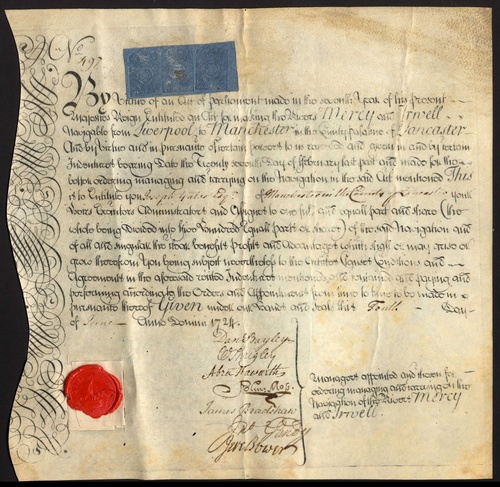 No 497
By Virtue of an Act of Parliament made in the seventh Year of his present
Majesties Reign Entituled an Act for making the Rivers Mercy and Irwell
Navigable from Liverpool to Manchester in the County Palatine of Lancaster
And by virtue and in pursuance of certain powers to us reserved and given in and by certain
Indentures bearing Date the Twenty seventh Day of February last past and made for the
better ordering managing and carrying on the Navigation in the said Act mentioned This
is to Entitule you Joseph Yates Esqr of Manchester in the County of Lancaster your
Heirs Executors Administrators and Assigns to one full and equall part and share (the
whole being Divided into five Hundred Equall parts or shares) of the said Navigation and
of all and singular the total benefit Profit and Advantages which shall or may arise or
grow therefrom You being subject nevertheless to the Covenants Conditions and
Agreements in the aforesaid recited Indentures mentioned and contained and paying and
performing according to the Orders and Appointments from time to time to be made in
pursuance thereof Given under our Hands and Seals this Tenth Day
of June Anno Domini 1724
Dan Bayley
Abra Haworth
James Bradshaw
Managers appointed and chosen for
ordering managing and carrying on the
Navigation of the Rivers Mercy
and Irwell.